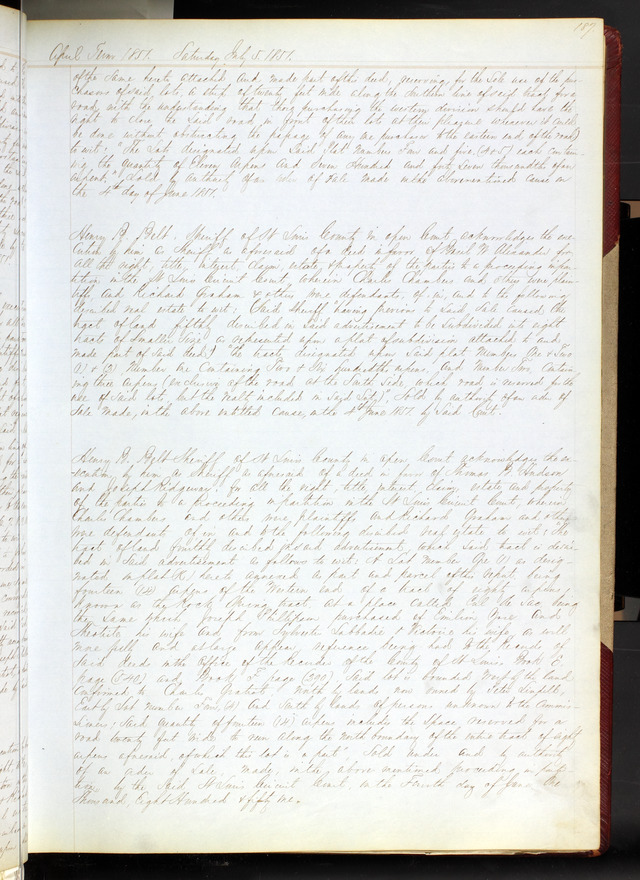 187
April Term 1851. Saturday July 5. 1851.
of the same hereto attached and made part of this deed, reserving for the sole use of the pur-
chasers of said lots, a strip of twenty feet wide along the Southern line of said tract for a
road, with the understanding that those purchasing the western division should have the
right to close the said road in front of their lots at their pleasure whenever it could
be done without obstructing the passage of any one purchaser to the eastern end of the road
to wit: "The Lots designated upon said plat number Four and five (4 & 5) each contain-
ing the quantity of Eleven Arpens and Seven Hundred and forty seven thousandths of an
arpent," Sold by authority of an order of Sale made in the above mentioned cause on
the 4th day of June 1851.
Henry B. Belt, Sheriff of St Louis County in open Court, acknowledges the exe-
cution by him as Sheriff as aforesaid of a deed in favor of Basil W Alexander for
all the right, title, interest, claim, estate, & property of the parties to a proceeding in parti-
tion in the St Louis Circuit Court, wherein Charles Chambers and others were plain-
tiffs, and Richard Graham & others were defendants, of, in, and to the following
described real estate to wit: (Said Sheriff having previous to said Sale caused the
tract of land fifthly described in said advertisement to be subdivided into eight
tracts of smaller size as represented upon a plat of subdivision attached to and
made part of said deed) "The tracts designated upon said plat Numbers One & Two
(1 & 2) Number One Containing Two & hundredths arpens, and Number Two, Contain-
ing three arpens (exclusive of the road at the South Side, which road is reserved for the
use of said lots, but the not included in said lots)", Sold by authority of an order of
Sale made, in the above entitled cause, on the 4th June 1851 by said Court.
Henry B. Belt Sheriff of St Louis County in open Court acknowledges the ex-
ecution by him as Sheriff as aforesaid of a deed in favor of Thomas Hudson
and for all the right, title, interest, claim, estate and property
of the parties to a Proceeding in partition in the St Louis Circuit Court, wherein
Charles Chambers and others were plaintiffs and Richard Graham and others
were defendants of in and to the following described real estate to wit: "The
tract of land fourthly described in said advertisement, which said tract is descri-
bed in said advertisement as follows to wit: A Lot Number One (1) as desig-
nated in plat hereto annexed as part and parcel of this report, being
fourteen (14) arpens of the Western end of a tract of eighty arpens
known as the Rock Spring tract, at a place called Cul de Sac, being
the same which Joseph Philipson purchased of Emilien Yosti and
his wife and from Sylvestre Labbadie & Victoire his wife, as will
more full and at large appear, reference being had to the records of
said deeds in the office of the Recorder of the County of St Louis, Book E
page (540) and Book F page (290), Said lot is bounded West by the land
Confirmed to Charles Gratiot, North by lands now owned by Peter Lindell,
East by Lot number Two, and South by lands of persons unknown to the Commis-
sioners; Said quantity of fourteen (14) arpens includes the space reserved for a
road twenty feet wide to run along the north boundary of the entire tract of eighty
arpens aforesaid, of which this lot is a part", Sold under and by authority
of an order of Sale, made, in the above mentioned proceeding in parti-
tion by the said St Louis Circuit Court, on the Fourth day of June One
Thousand, Eight Hundred & fifty one.